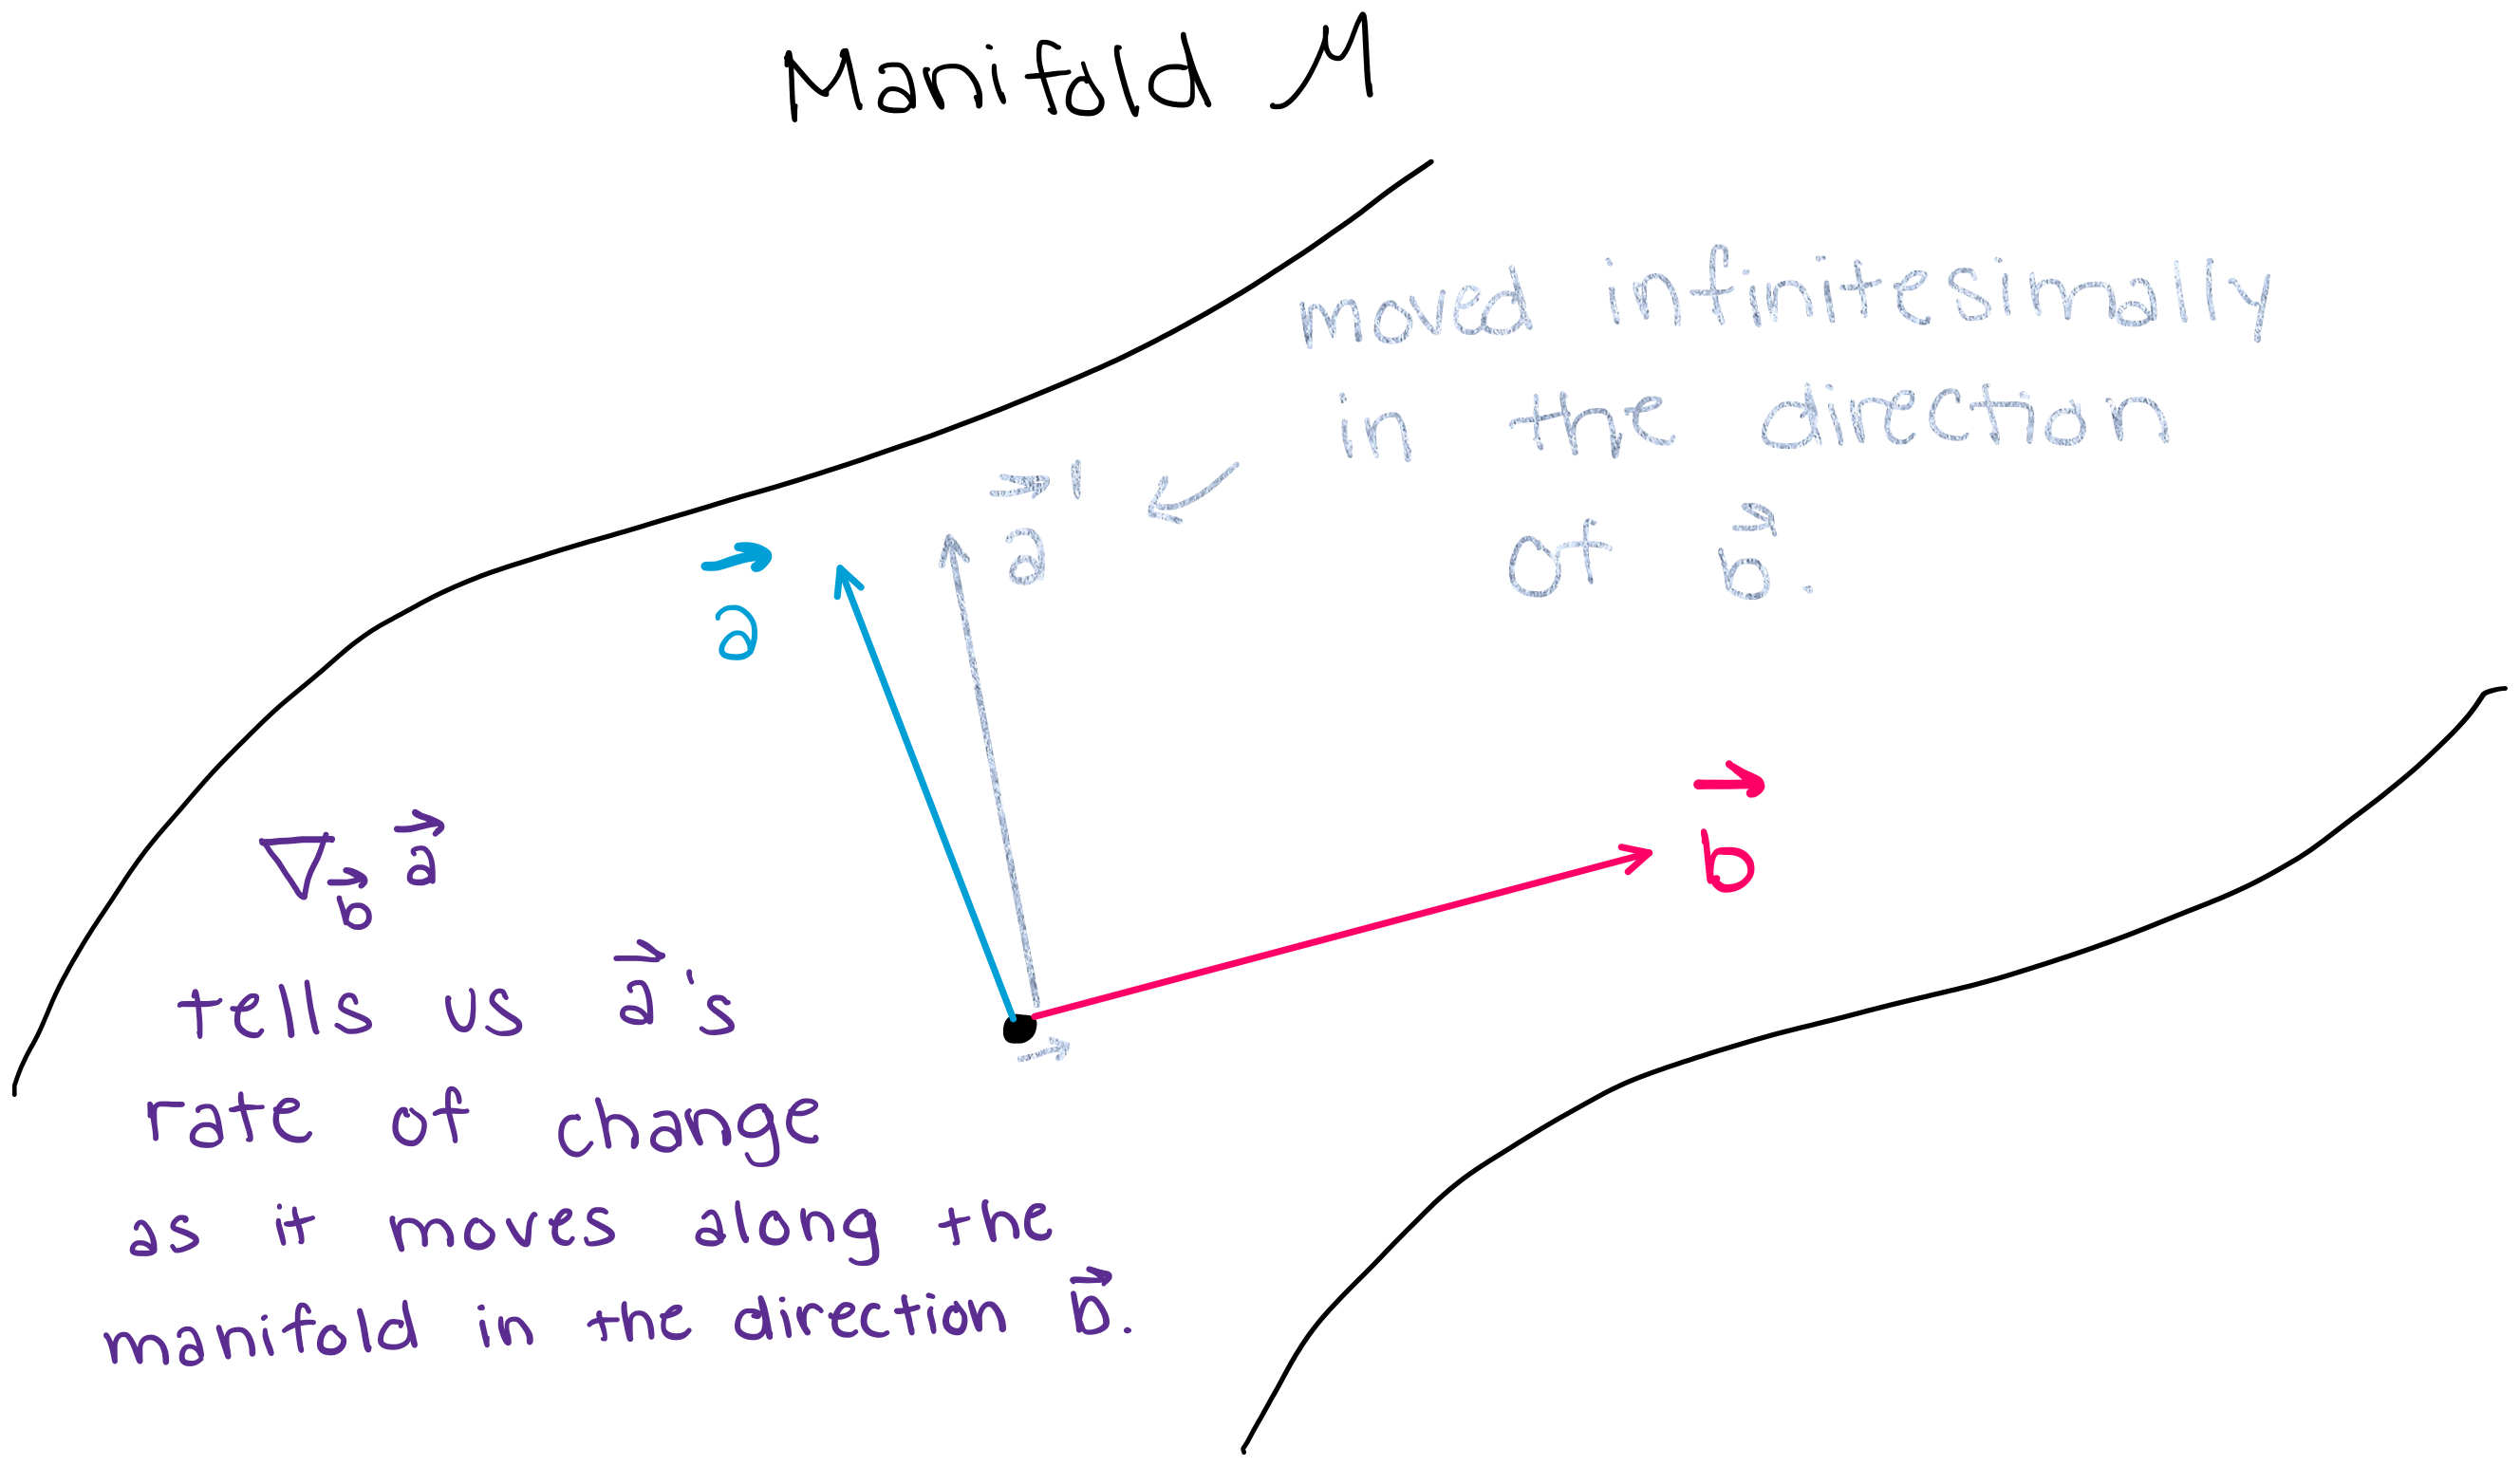 Manifold M
moved infinitesimally
in the direction
of b⃗.
a⃗'
a⃗
b⃗
∇b⃗ a⃗
tells us a⃗'s
rate of change
as it moves along the
manifold in the direction b⃗.